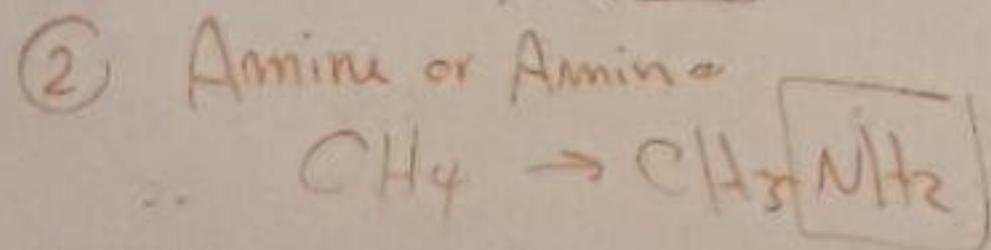 ② Amine or Amino
CH4 → CH3-NH2